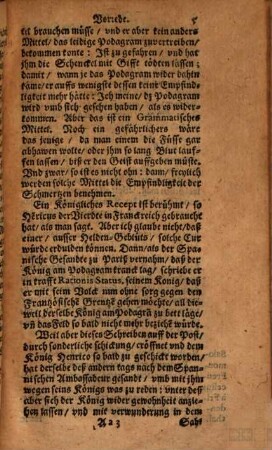 Vorrede. 5
tel brauchen müsse / und er aber kein anders
Mittel / das leidige Podagram zuvertreiben /
bekommen konte: Ist zu gefahren / und hat
ihm die Schenckel mit Gifft tödten lassen;
damit / wann je das Podagram wider dahin
käme / er auffs wenigste dessen keine Empfind-
ligkeit mehr hätte: Jch meine / dz Podagram
wird sich gesehen haben / als es wider-
kommen. Aber das ist ein Grammatisches
Mittel. Noch ein gefährlichers wäre
das jenige / da man einem die Füsse gar
abhawen wolte / oder ihm so lang Blut lauf-
fen lassen / biß er den Geist auffgeben müste.
Und zwar / so ist es nicht ohn: dann / freylich
werden solche Mittel die Empfindligkeit der
Schmertzen benehmen.
Ein Königliches Recept ist berühmt / so
Hēricus der Vierdte in Franckreich gebraucht
hat / als man sagt. Aber ich glaube nicht / daß
einer / ausser Helden-Geblüts / solche Cur
würde erdulden können. Dann / als der Spa-
nische Gesandte zu Pariß vernahm / daß der
König am Podagram kranck lag / schriebe er
in krafft Rationis Status, seinem König / daß
er mit seinem Volck nun ohn sorg gegen den
Frantzösische Grentzē gehen möchte / all die-
weil derselbe König am Podagrā zu bett läge /
uñ das Feld so bald nicht mehr bezieht würde.
Weil aber dieses Schreiben auff der Post /
durch sonderliche schickung / eröffnet und dem
König Henrico so bald zu geschickt worden /
hat derselbe deß andern tags nach dem Spa-
nischen Ambassadeur gesandt / umb mit ihm
wegen seins Königs was zu reden: unter deß
aber sich der König wider gewohnheit anzie-
hen lassen / und mit verwunderung in dem
A a 3 Sahl